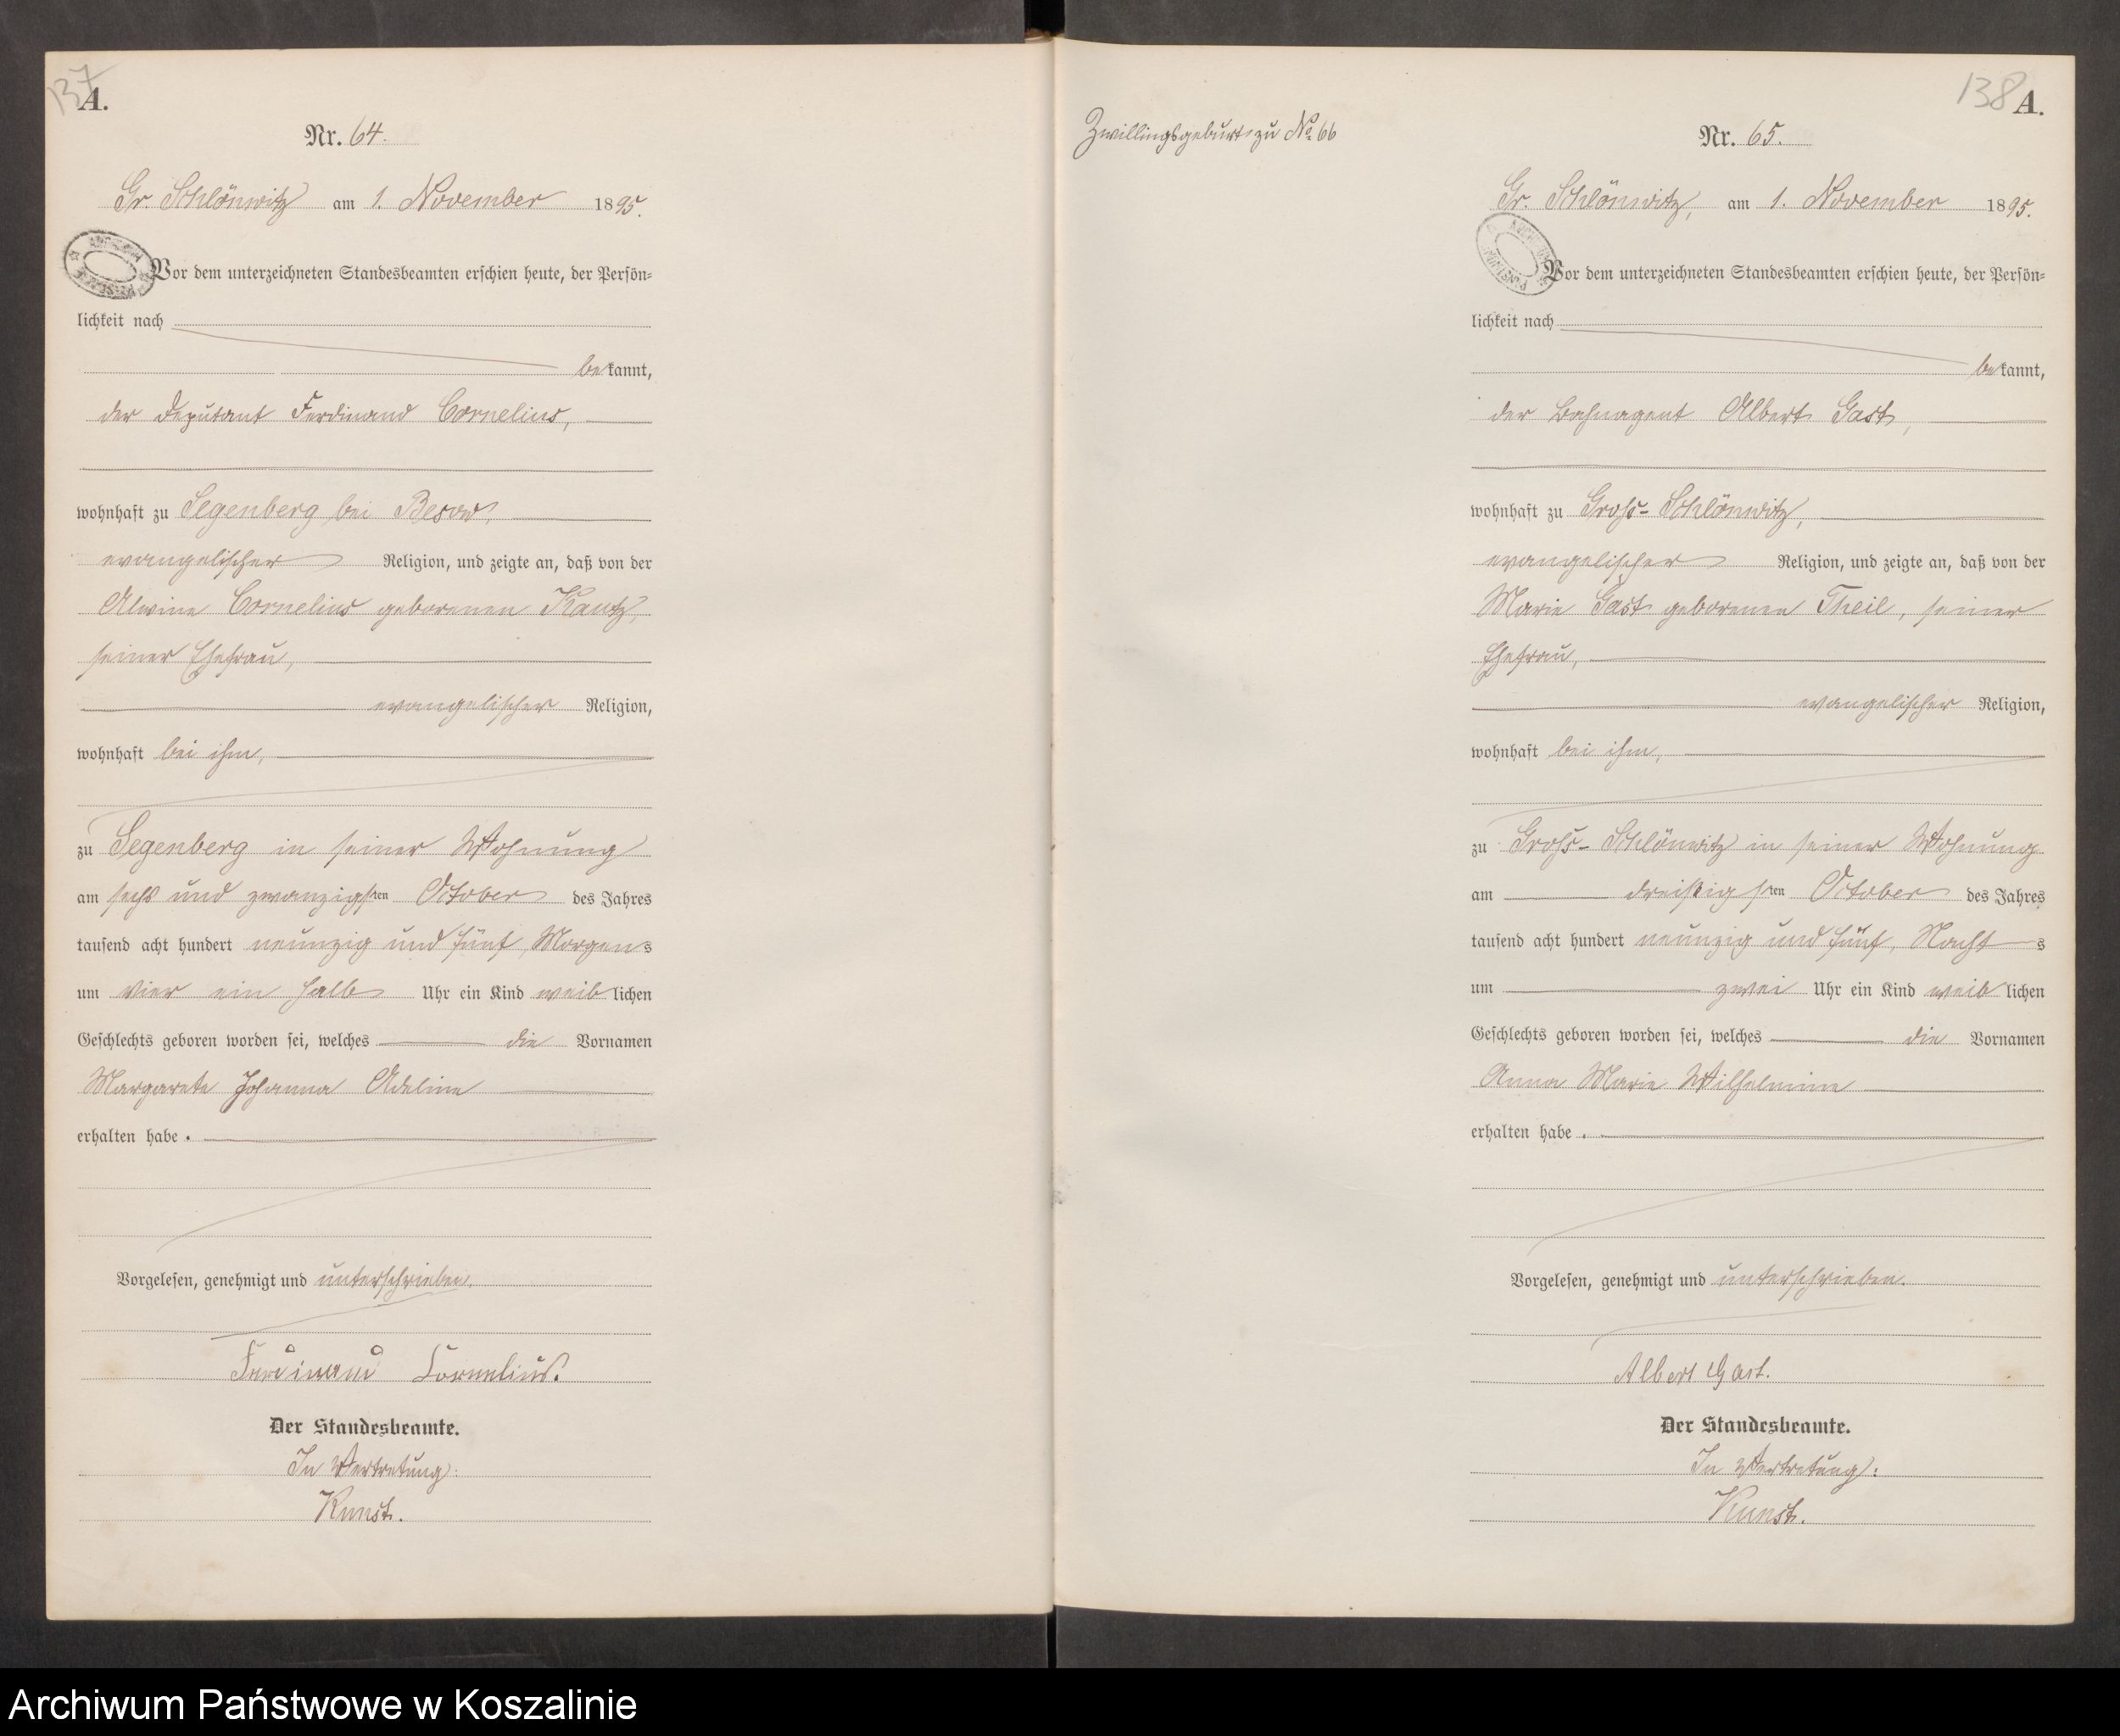 137
A.
Nr. 64.
Gr. Schlönwitz am 1. November 1895.
Vor dem unterzeichneten Standesbeamten erschien heute, der Persön-
lichkeit nach
bekannt,
der Deputant Ferdinand Cornelius,
wohnhaft zu Segenberg bei Besow,
evangelischer Religion, und zeigte an, daß von der
Alwine Cornelius geborenen Kautz,
seiner Ehefrau,
evangelischer Religion,
wohnhaft bei ihm,
zu Segenberg in seiner Wohnung
am sechs und zwanzigsten October des Jahres
tausend acht hundert neunzig und fünf, Morgens
um vier ein halb Uhr ein Kind weiblichen
Geschlechts geboren worden sei, welches die Vornamen
Margarete Johanna Adeline
erhalten habe.
Vorgelesen, genehmigt und unterschrieben.
Ferdinand Cornelius.
Der Standesbeamte.
In Vertretung:
Kunst.
138
A.
Zwillingsgeburt zu No 66
Nr. 65.
Gr. Schlönwitz, am 1. November 1895.
Vor dem unterzeichneten Standesbeamten erschien heute, der Persön-
lichkeit nach
bekannt,
der Bahnagent Albert Gast,
wohnhaft zu Groß-Schlönwitz,
evangelischer Religion, und zeigte an, daß von der
Marie Gast geborenen Theil, seiner
Ehefrau,
evangelischer Religion,
wohnhaft bei ihm,
zu Groß-Schlönwitz in seiner Wohnung
am dreißigsten October des Jahres
tausend acht hundert neunzig und fünf, Nachts
um zwei Uhr ein Kind weiblichen
Geschlechts geboren worden sei, welches die Vornamen
Anna Marie Wilhelmine
erhalten habe.
Vorgelesen, genehmigt und unterschrieben.
Albert Gast.
Der Standesbeamte.
In Vertretung:
Kunst.
Archiwum Państwowe w Koszalinie